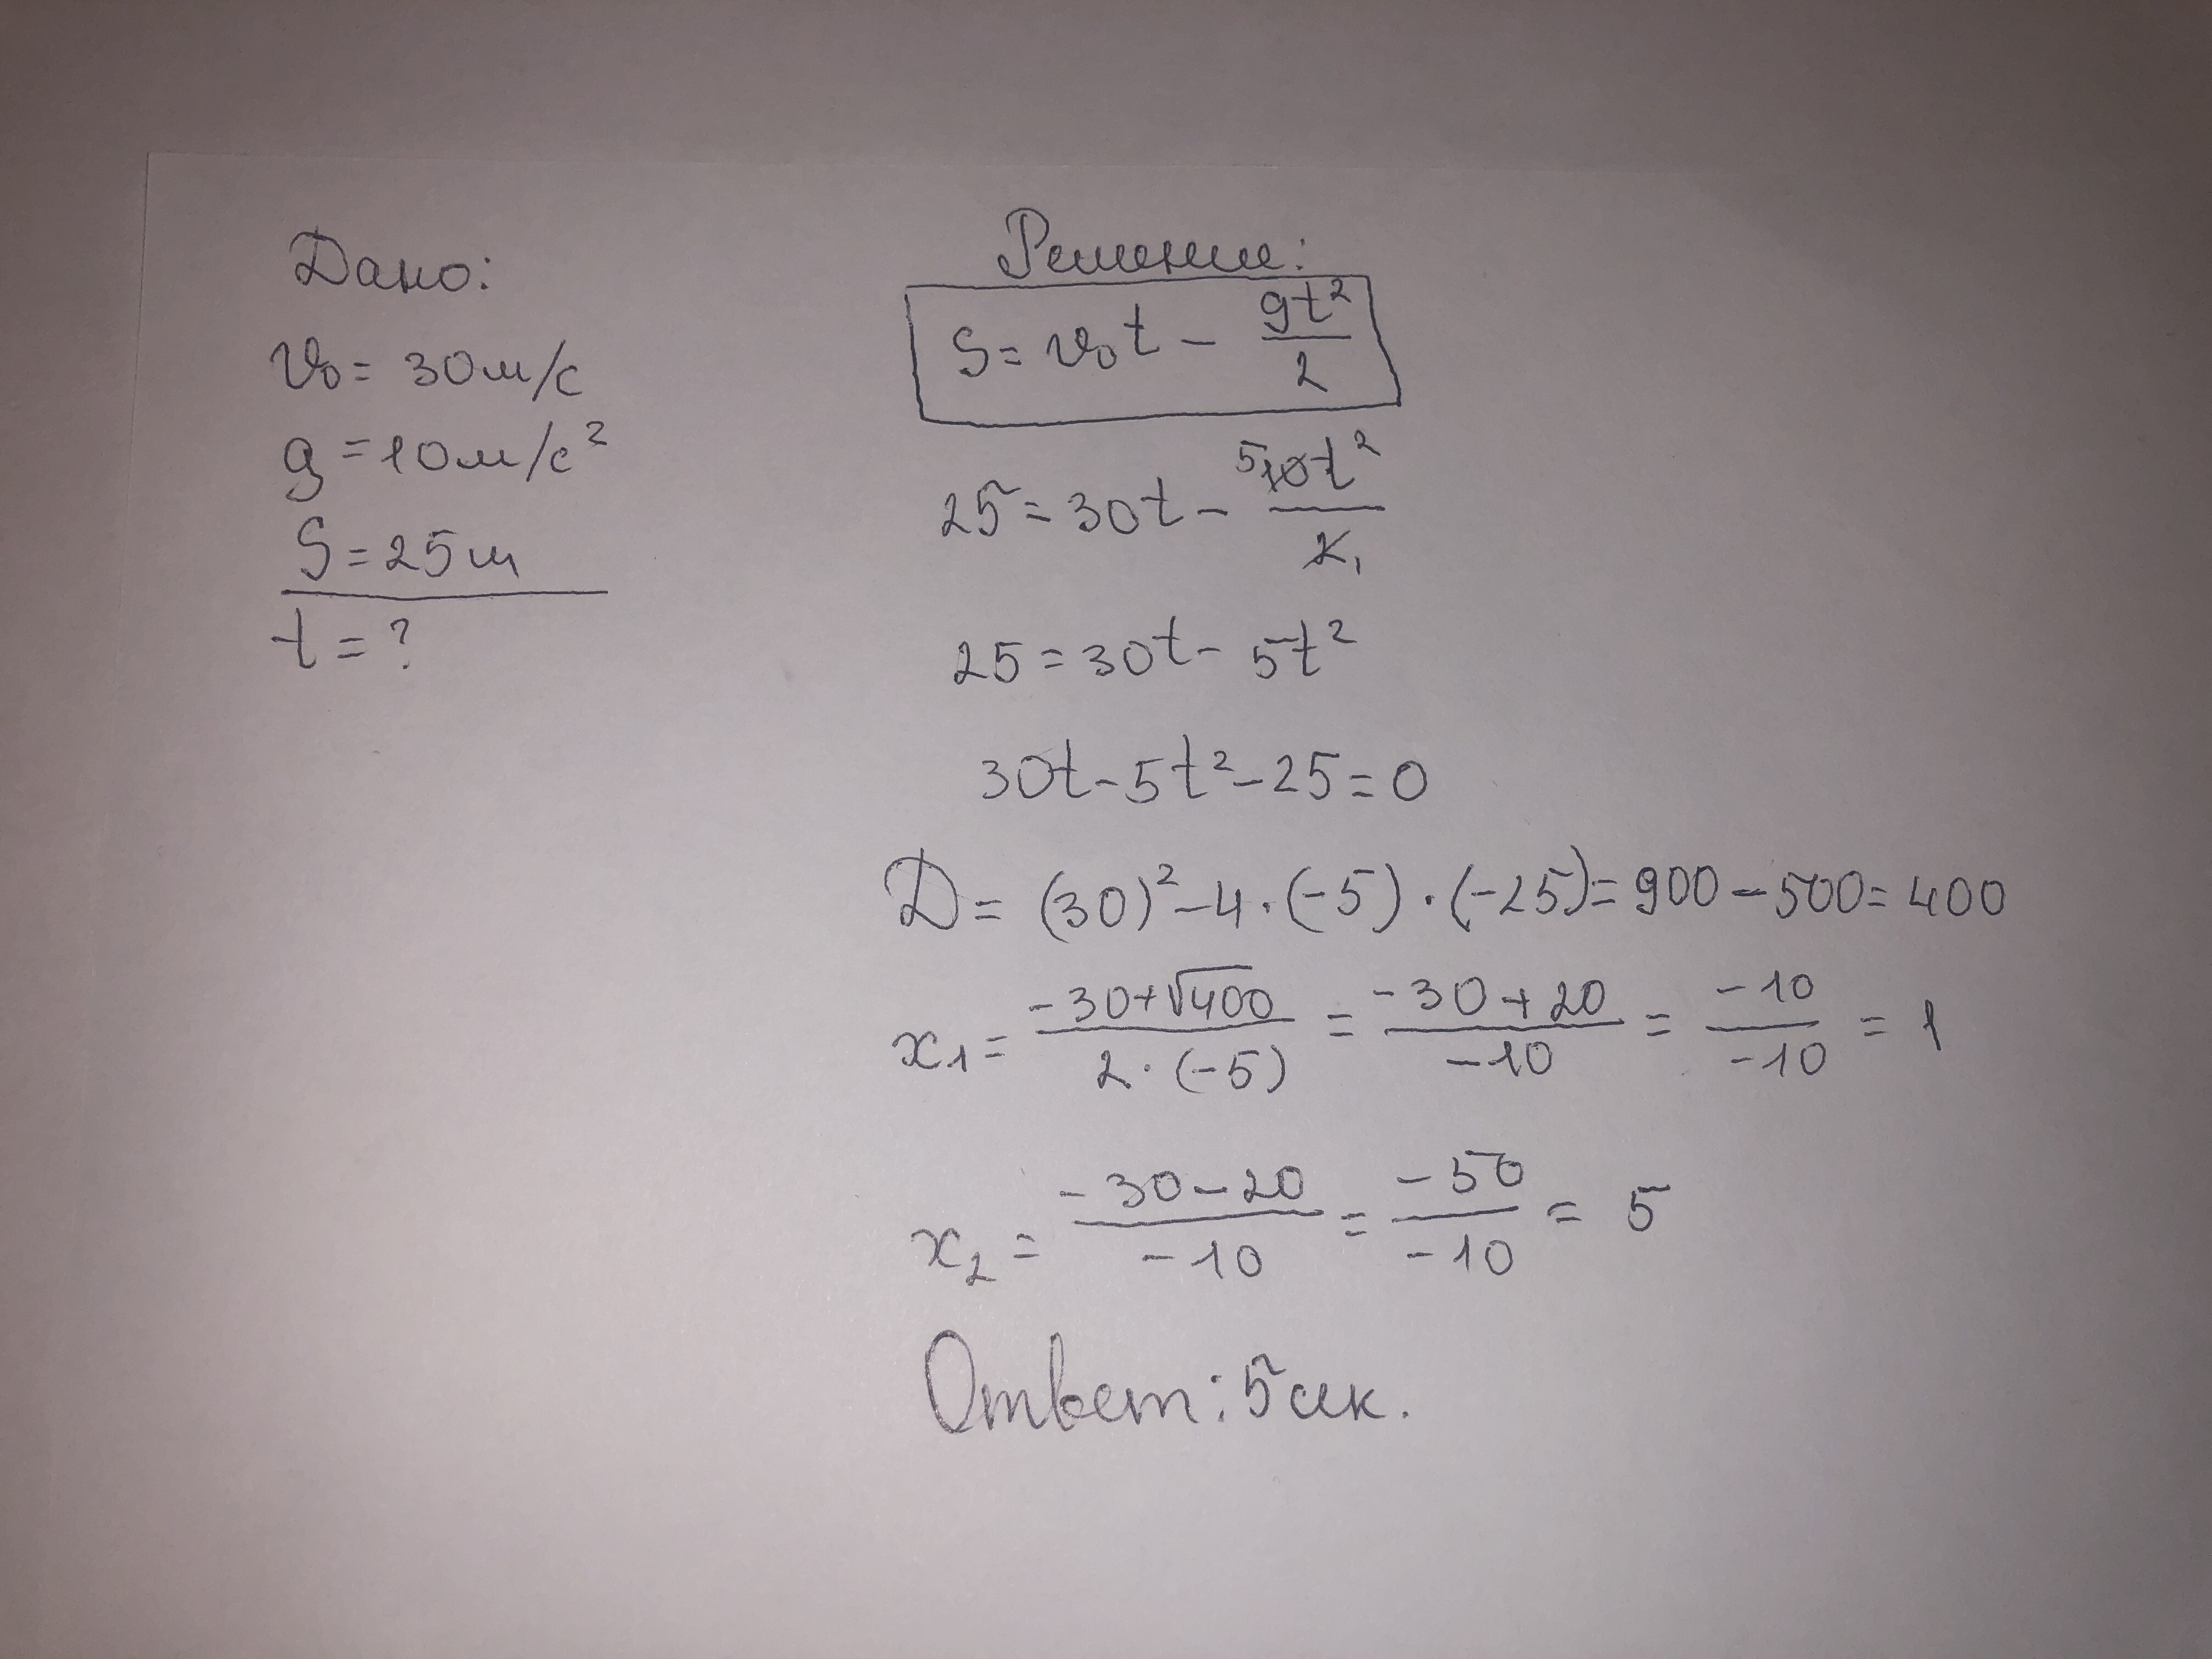 Дано:
v₀ = 30м/с
g = 10м/с²
S = 25м
t = ?
Решение:
S = v₀t - gt²/2
25 = 30t - 5 10t²/2 1
25 = 30t - 5t²
30t - 5t² - 25 = 0
D = (30)² - 4 · (-5) · (-25) = 900 - 500 = 400
x₁ = -30+√400 / 2·(-5) = -30+20 / -10 = -10 / -10 = 1
x₂ = -30-20 / -10 = -50 / -10 = 5
Ответ: 5 сек.